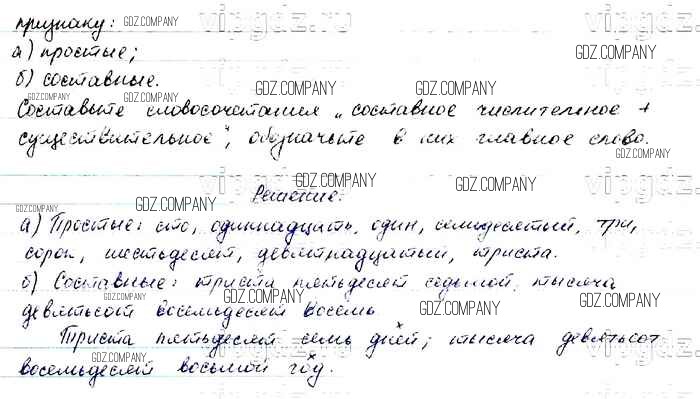 признаку:
а) простые;
б) составные.
Составьте словосочетания „составное числительное +
существительное", обозначьте в них главное слово.
Решение:
а) Простые: сто, одиннадцать, один, семидесятый, три,
сорок, шестьдесят, девятнадцатый, триста.
б) Составные: триста пятьдесят седьмой, тысяча
девятьсот восемьдесят восемь.
Триста пятьдесят семь дней; тысяча девятьсот
восемьдесят восьмой год.
GDZ.COMPANY
vipgdz.ru